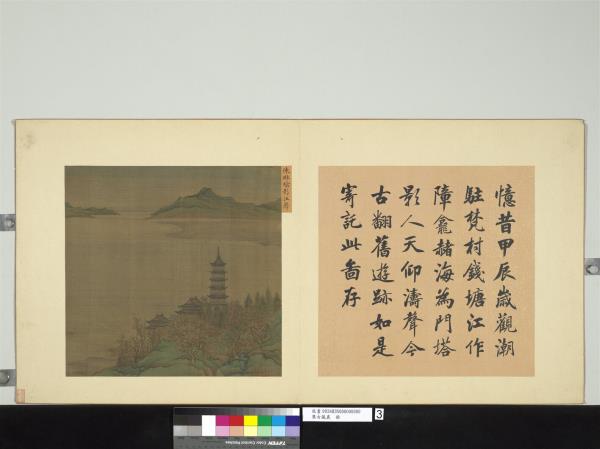 憶昔甲辰歲觀潮
駐梵村錢塘江作
障龕赭海為門塔
影人天仰濤聲今
古翻舊遊跡如是
寄託此啚存
3